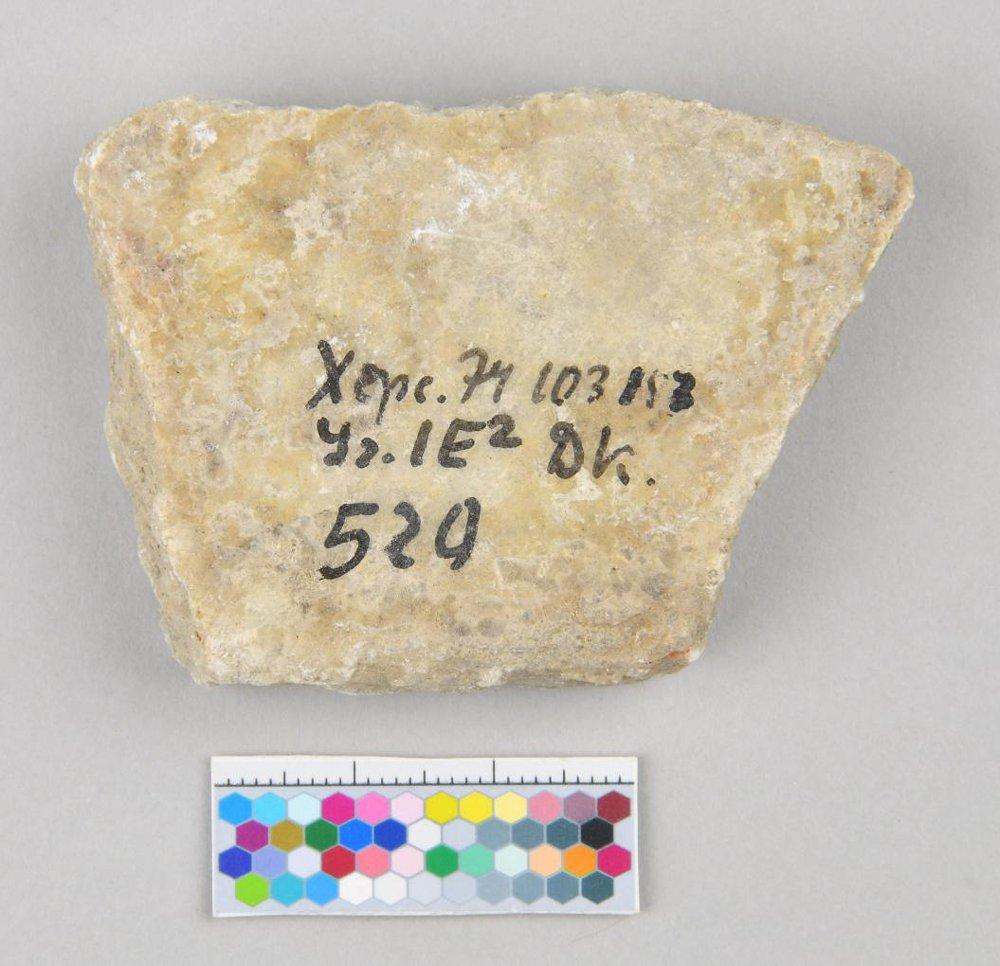 Херс. 74 103 153
Уг. IE² Dk.
529